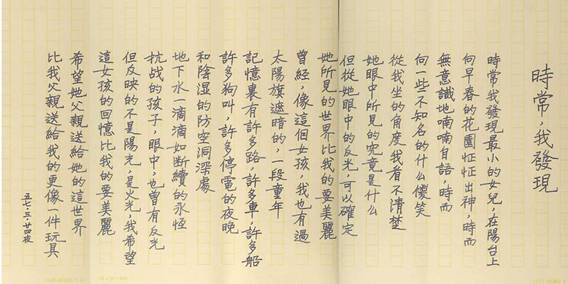 時常,我發現
時常我發現最小的女兒,在陽台上
向早春的花園怔怔出神,時而
無意識地喃喃自語,時而
向一些不知名的什么傻笑
從我坐的角度我看不清楚
她眼中所見的究竟是什么
但從她眼中的反光,可以確定
她所見的世界比我的要美麗
曾經,像這個女孩,我也有過
太陽旗遮暗的,一段童年
記憶裏有許多路,許多車,許多船
許多狗叫,許多停電的夜晚
和陰濕的防空洞深處
地下水一滴滴如斷續的永恆
抗战的孩子,眼中,也曾有反光
但反映的不是陽光,是火光,我希望
這女孩的回憶比我的要美麗
希望她父親送給她的這世界
比我父親送給我的更像一件玩具
五七.三.廿四夜